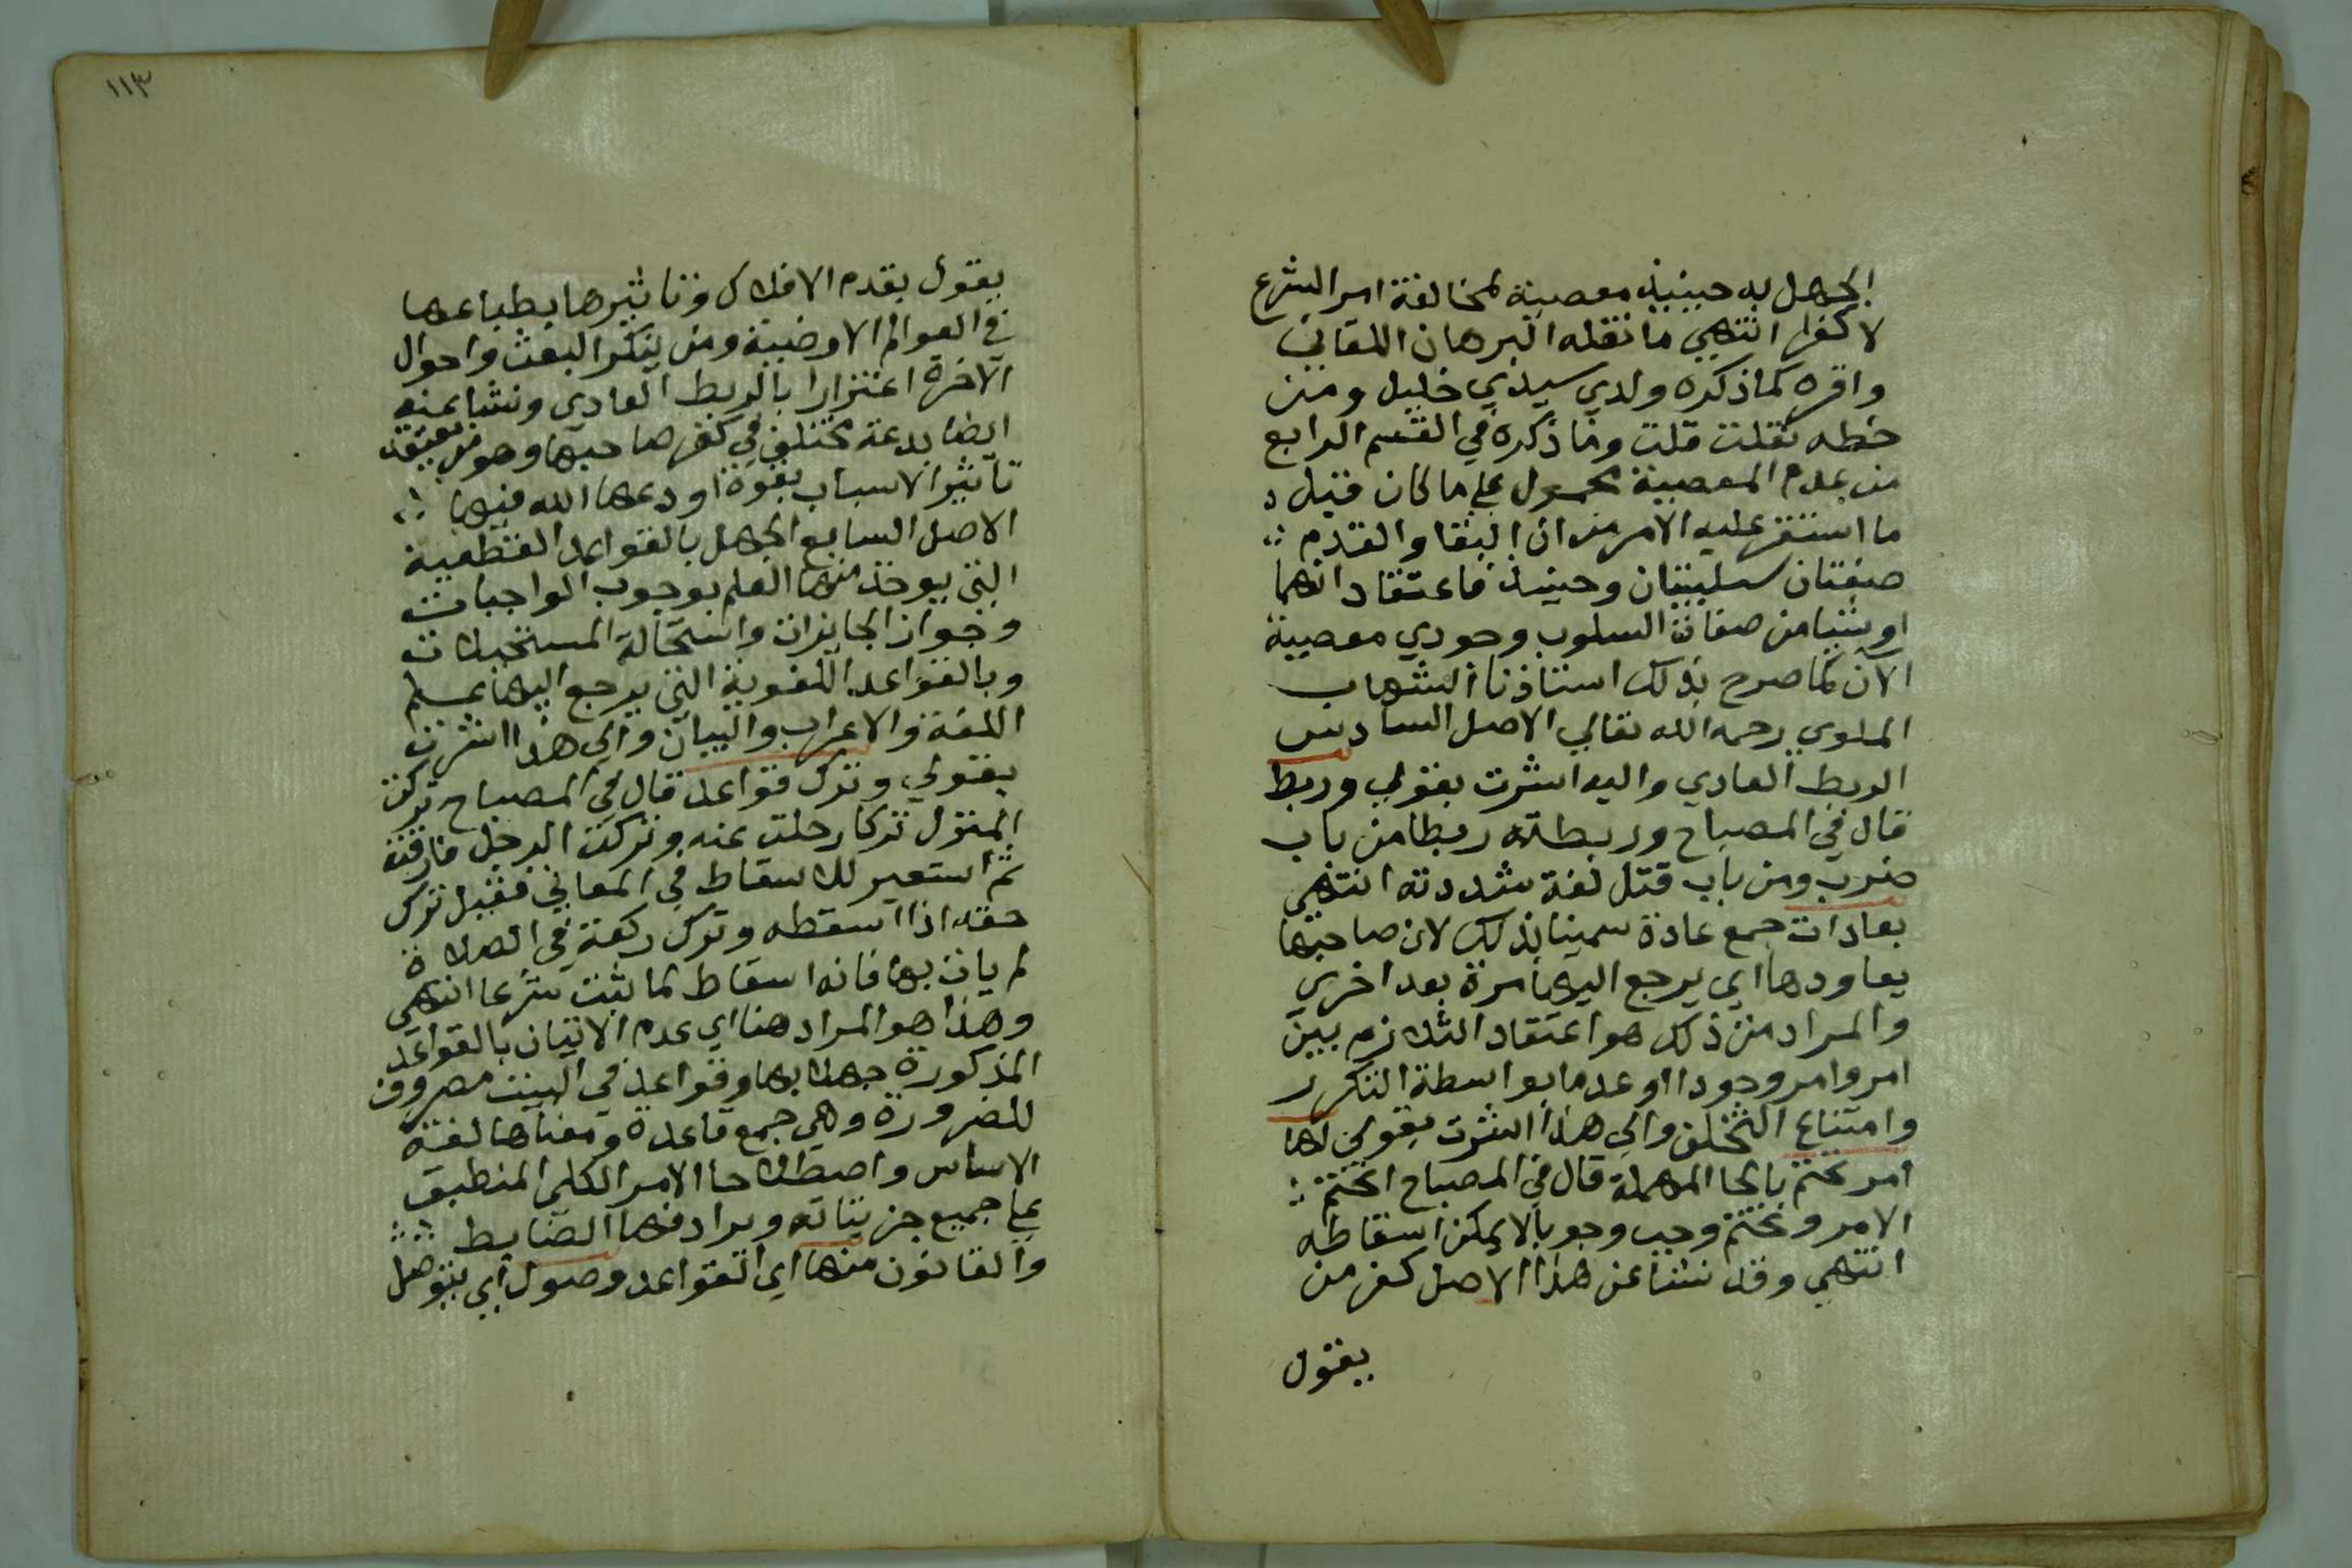 الجهل به حينيذ معصية لمخالفة امر الشرع
لا كفرا انتهي ما نقله البرهان اللقاني
واقره كما ذكره ولدي سيدي خليل ومن
خطه نقلت قلت وما ذكره في القسم الرابع
من عدم المعصية محمول علي ما كان قبل
ما استقر عليه الامر من ان البقا والقدم
صفتان سلبيتان وحينيذ فاعتقاد انهما
او شيا من صفات السلوب وجودي معصية
الآن كما صرح بذلك استاذنا الشهاب
الملوي رحمه الله تعالي الاصل السادس
الربط العادي واليه اشرت بقولي وربط
قال في المصباح وربطته ربطا من باب
ضرب ومن باب قتل لغة شددته انتهي
بعادات جمع عادة سميت بذلك لان صاحبها
يعاودها اي يرجع اليها مرة بعد اخري
والمراد من ذلك هو اعتقاد التلازم بين
امر وامر وجودا او عدما بواسطة التكرر
وامتناع التخلف والي هذا اشرت بقولي لها
امر تحتم بالحا المهملة قال في المصباح انحتم
الامر وتحتم وجب وجوبا لا يمكن اسقاطه
انتهي وقد نشا عن هذا الاصل كفر من
يقول
١١٣
يقول بقدم الافلاك وتاثيرها بطباعها
في العوالم الارضية ومن ينكر البعث واحوال
الآخرة اغترارا بالربط العادي ونشا عنه
ايضا بدعة مختلف في كفر صاحبها وهو من يعتقد
تاثير الاسباب بقوة اودعها الله فيها
الاصل السابع الجهل بالقواعد القطعية
التي يوخذ منها العلم بوجوب الواجبات
وجواز الجايزات واستحالة المستحيلات
وبالقواعد اللغوية التي يرجع اليها علم
اللغة والاعراب والبيان والي هذا اشرت
بقولي وترك قواعد قال في المصباح تركت
المنزل تركا رحلت عنه وتركت الرجل فارقته
ثم استعير للاسقاط في المعاني فقيل ترك
حقه اذا اسقطه وترك ركعة في الصلاة
لم يات بها فانه اسقاط لما ثبت شرعا انتهي
وهذا هو المراد هنا اي عدم الاتيان بالقواعد
المذكورة جهلا بها وقواعد في البيت مصروف
للضرورة وهي جمع قاعدة ومعناها لغة
الاساس واصطلاحا الامر الكلي المنطبق
علي جميع جزيئاته ويرادفها الضابط
والقانون منها اي القواعد وصول اي يتوصل